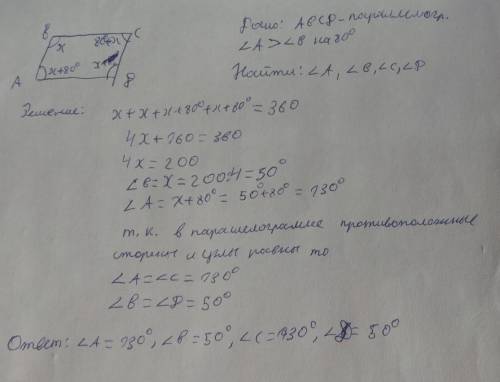 B C
x 80°+x
x+80° x
A D
Дано: ABCD - параллелогр.
∠A > ∠B на 80°
Найти: ∠A, ∠B, ∠C, ∠D
Решение: x+x+x+80°+x+80°=360
4x+160=360
4x=200
∠B=x=200:4=50°
∠A=x+80°=50°+80°=130°
т.к. в параллелограмме противоположные
стороны и углы равны то
∠A=∠C=130°
∠B=∠D=50°
Ответ: ∠A=130°, ∠B=50°, ∠C=130°, ∠D=50°